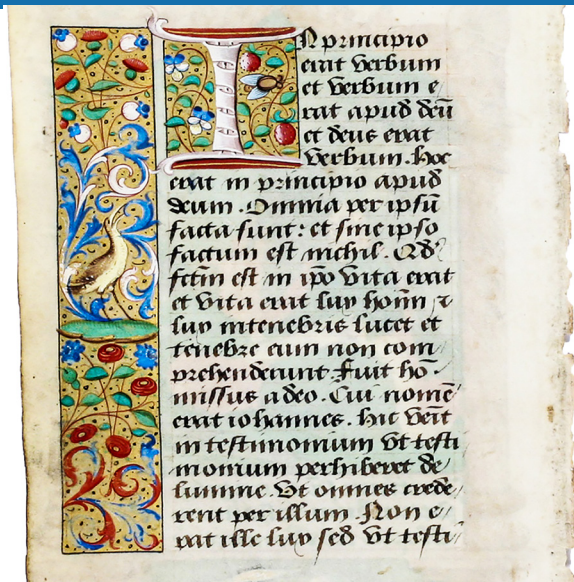 IN principio
erat verbum
et verbum e
rat apud deū
et deus erat
verbum. Hoc
erat in principio apud
deum. Omnia per ipsū
facta sunt: et sine ipso
factum est nichil. Qd
fctm est in ipo vita erat
et vita erat lux homī ⁊
lux in tenebris lucet et
tenebre eum non com
prehenderunt Fuit hō
missus a deo. Cui nomē
erat iohannes. hic veīt
in testimonium vt testi
monium perhiberet de
lumine. Vt omnes crede
rent per illum Non e
rat ille lux sed vt testi